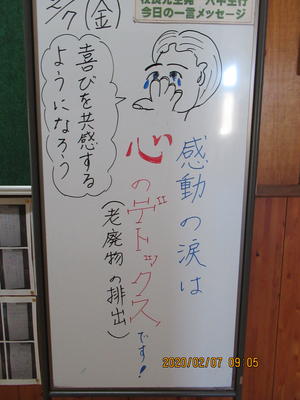 2/7(金)
今日の一言メッセージ
感動の涙は
心のデトックスです!
(老廃物の排出)
喜びを共感する
ようになろう
2020/02/07 09:05